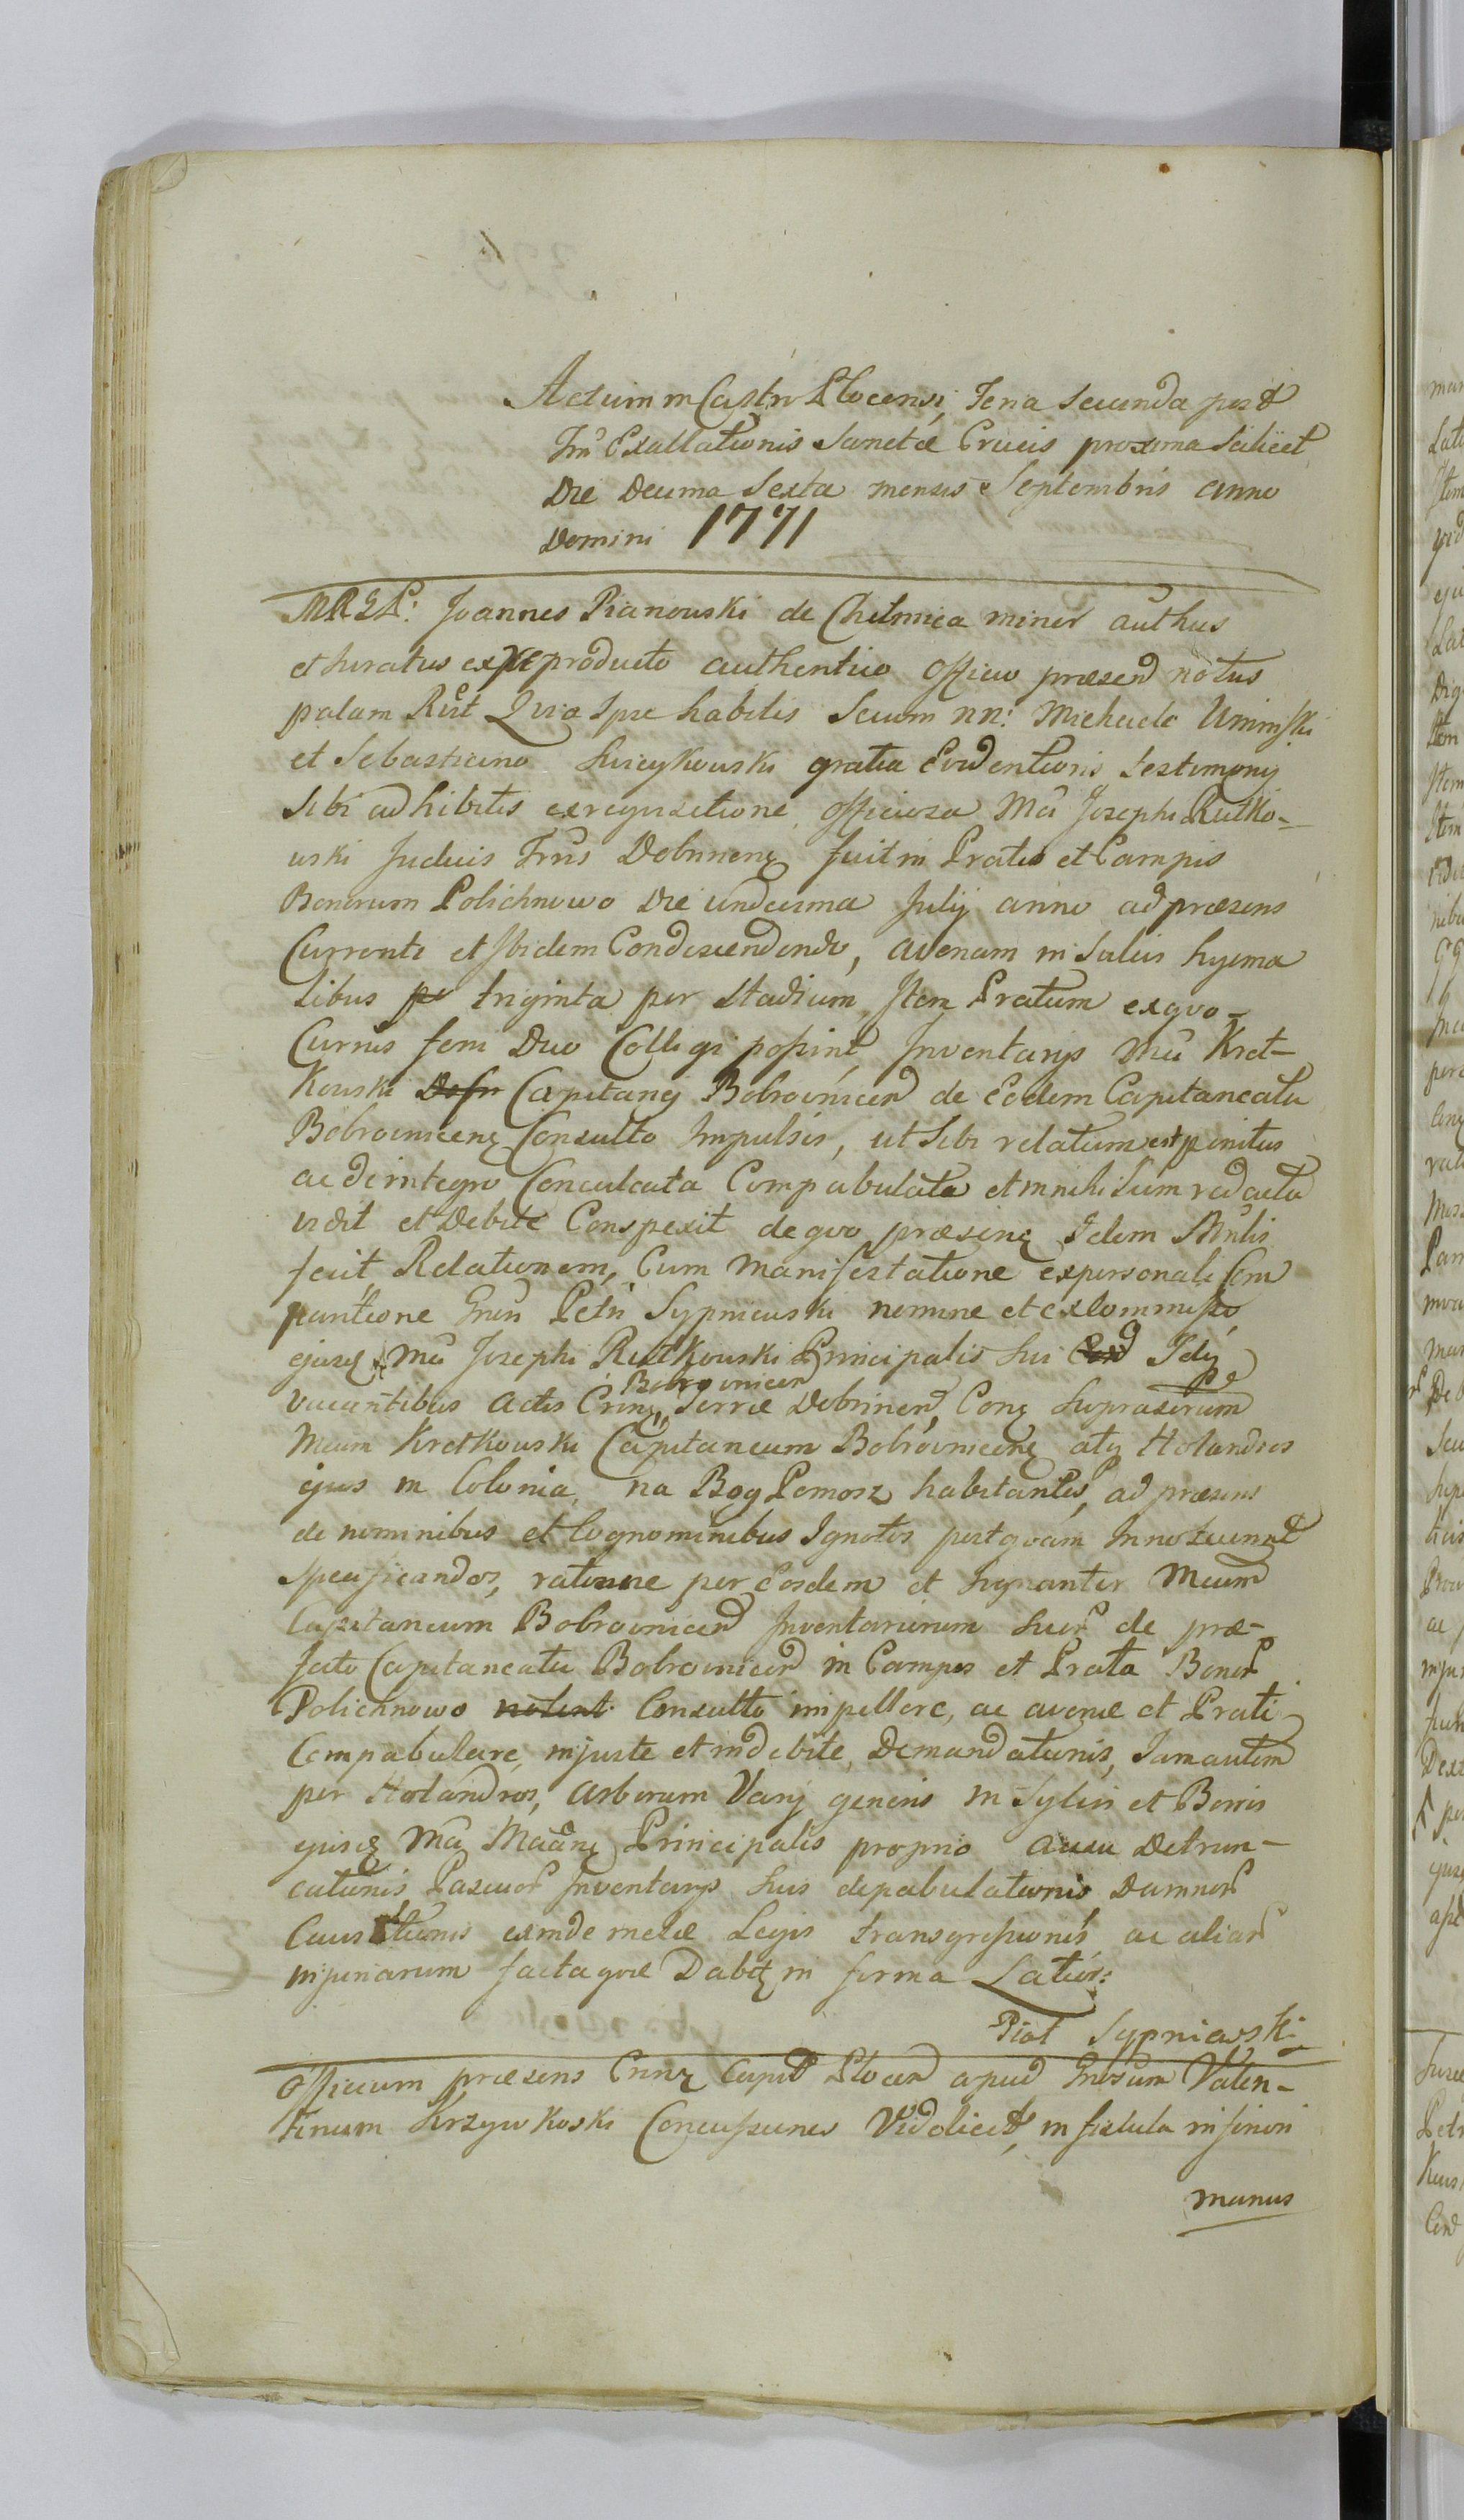 Actum in Castro Plocensi, Feria Secunda post
Fm̃ Exaltationis Sanctæ Crucis proxima Scilicet
Die Decima Sexta mensis Septembris anno
Domini 1771
MRGL: Joannes Pianowski de Chelmica minor authus
et Juratus exseproducto authentico officio præsen notus
palam Rlit Quia Ipse habitis Secum nn: Michaele Uminski
et Sebastiano gratia Evidentioris Testimonij
Sibi adhibitis exrequisitione officiosa Mci Josephi Rutko=
wski Judicis Trris Dobrinen fuit in Pratis et Campis
Bonorum Polichnowo Die undecima Julij anno ad præsens
Currenti et Ibidem Condescendendo, avenam in Sulcis hyema
libus pe triginta per Stadium, Item Pratum exquo-
Currus feni Duo Colligi possint, Inventarijs Mci Kret-
kowski Capitanei Bobrownicen de Eodem Capitaneatu
Bobrownicen Consulto Impulsis, ut Sibi relatum est penitus
ac deintegro Conculcata Compabulata et in nihilum redacta
vidit et Debite Conspexit de quo præsens Idem Mnlis
fecit Relationem, Cum Manifestatione expersonali Com
paritione Gnsi Petri Sypniewski nomine et ex Commisso,
ejusd Mci Josephi Rutkowski Principalis Sui
vacantibus Actis Bobrownicen Terræ Dobrinen, Con Suprascrum
Mcum Kretkowski Capitaneum Bobrownicen atq Holandros
ejus in Colonia na Bog Pomosz habitantes, ad præsens
de nominibus et Cognominibus Ignotos postquam Innotuerint
specificandos, ratione per Eosdem et Signanter Mcum
Capitaneum Bobrownicen Inventariorum Suor de præ-
fato Capitaneatu Bobrownicen in Campos et Prata Bonor
Polichnowo Consulto impellere, ac avenæ et Prati
Compabulare, injuste et indebite, Demandationis, Jam autem
per Holandros, arborum Varij generis in Sylvis et Borris
ejusd Mci Principalis proprio ausu Detrun-
cationis, Pascuor Inventarijs Suis depabulationis Damnor
exinde metæ Legis transgressionis ac aliar
injuriarum factaque Dabit in forma Latior:
Piotr Sypniewski
Officium præsens Capit Plocen apud Gnosum Valen-
tinum Krzywkoski Concussiones Videlicet, in
manus